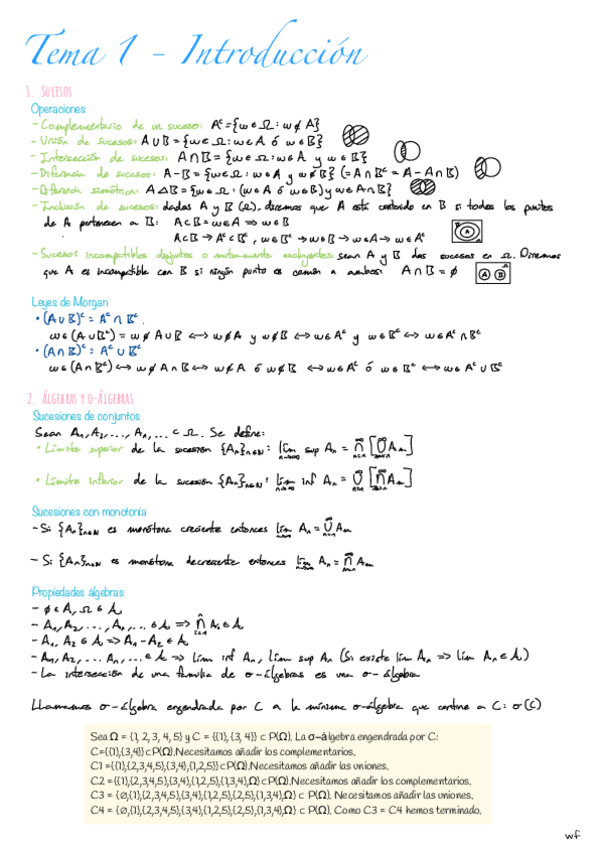 Tema 1 - Introducción
1. SUCESOS
Operaciones
- Complementario de un suceso: Aᶜ={w∈Ω: w∉A}
- Unión de sucesos: A∪B={w∈Ω: w∈A ó w∈B}
- Intersección de sucesos: A∩B={w∈Ω: w∈A y w∈B}
- Diferencia de sucesos: A-B={w∈Ω: w∈A y w∉B} (=A∩Bᶜ = A-A∩B)
- Diferencia simétrica: A△B={w∈Ω: (w∈A ó w∈B) y w∉A∩B}
- Inclusión de sucesos: dados A y B (Ω), diremos que A está contenido en B si todos los puntos
de A pertenecen a B: A⊂B=w∈A ⟹ w∈B
A⊂B → Aᶜ⊂Bᶜ, w∈Bᶜ → w∉B → w∉A → w∈Aᶜ
- Sucesos incompatibles disjuntos o mutuamente excluyentes: sean A y B dos sucesos en Ω. Diremos
que A es incompatible con B si ningún punto es común a ambos: A∩B=∅
Leyes de Morgan
• (A∪B)ᶜ = Aᶜ∩Bᶜ.
w∈(A∪Bᶜ) = w∉A∪B ⟷ w∉A y w∉B ⟷ w∈Aᶜ y w∈Bᶜ ⟷ w∈Aᶜ∩Bᶜ
• (A∩B)ᶜ = Aᶜ∪Bᶜ
w∈(A∩Bᶜ) ⟷ w∉A∩B ⟷ w∉A ó w∉B ⟷ w∈Aᶜ ó w∈Bᶜ ⟷ w∈Aᶜ∪Bᶜ
2. ÁLGEBRAS Y σ-ÁLGEBRAS
Sucesiones de conjuntos
Sean A₁,A₂,...,Aₙ,...⊂Ω. Se define:
• Límite superior de la sucesión {Aₙ}ₙ∈N: lim sup Aₙ = ∩[∪Aₘ]
• Límite inferior de la sucesión {Aₙ}ₙ∈N: lim inf Aₙ = ∪[∩Aₘ]
Sucesiones con monotonía
- Si {Aₙ}ₙ∈N es monótona creciente entonces lim Aₙ = ∪Aₘ
- Si {Aₙ}ₙ∈N es monótona decreciente entonces lim Aₙ = ∩Aₘ
Propiedades álgebras
- ∅∈A, Ω∈A
- A₁,A₂,...,Aₙ,...∈A ⟹ ∩Aᵢ∈A
- A₁,A₂∈A ⟹ A₁-A₂∈A
- A₁,A₂,...Aₙ,...∈A ⟹ lím inf Aₙ, lím sup Aₙ (Si existe lím Aₙ ⟹ lím Aₙ∈A)
- La intersección de una familia de σ-álgebras es una σ-álgebra
Llamamos σ-álgebra engendrada por C a la mínima σ-álgebra que contiene a C: σ(C)
Sea Ω = {1, 2, 3, 4, 5} y C = {{1}, {3, 4}} ⊂ P(Ω). La σ-álgebra engendrada por C:
C={{1},{3,4}}⊂P(Ω).Necesitamos añadir los complementarios.
C1 ={{1},{2,3,4,5},{3,4},{1,2,5}}⊂P(Ω).Necesitamos añadir las uniones.
C2 ={{1},{2,3,4,5},{3,4},{1,2,5},{1,3,4},Ω} ⊂ P(Ω).Necesitamos añadir los complementarios.
C3 = {∅,{1},{2,3,4,5},{3,4},{1,2,5},{2,5},{1,3,4},Ω} ⊂ P(Ω). Necesitamos añadir las uniones.
C4 = {∅,{1},{2,3,4,5},{3,4},{1,2,5},{2,5},{1,3,4},Ω} ⊂ P(Ω). Como C3 = C4 hemos terminado.
wf